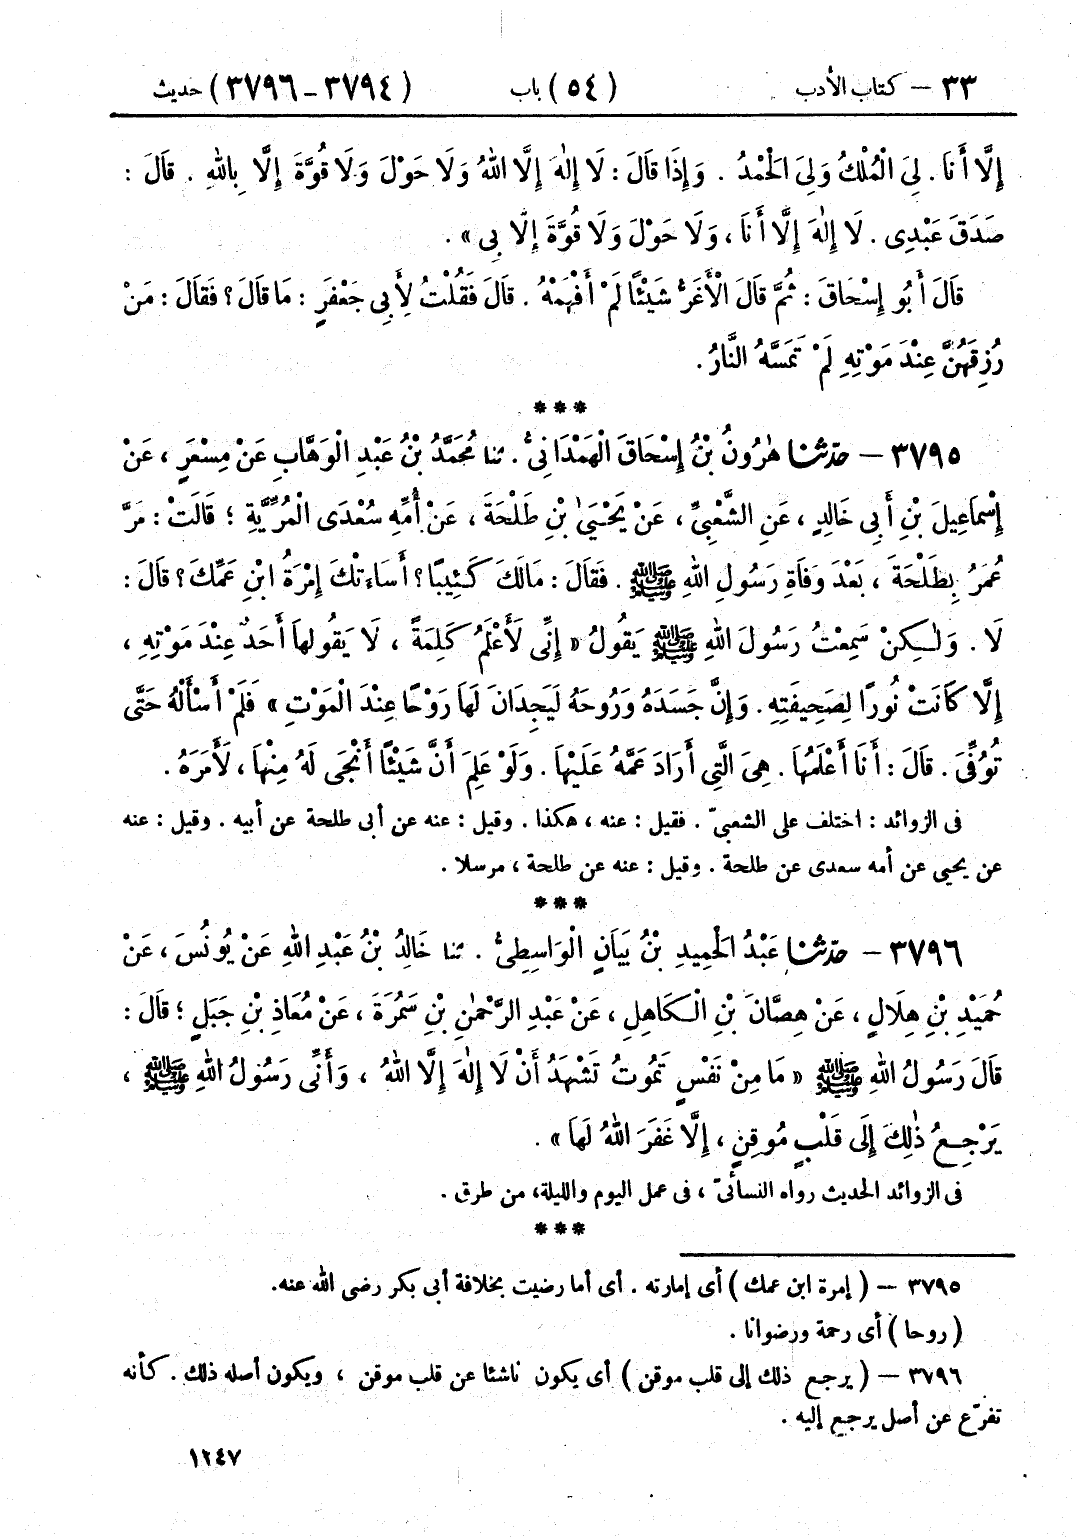 ٣٣ – كتاب الأدب (٥٤) باب (٣٧٩٤-٣٧٩٦) حديث
إِلَّا أَنَا. لِىَ الْمُلْكُ وَلِىَ الْحَمْدُ. وَإِذَا قَالَ: لَا إِلٰهَ إِلَّا اللهُ وَلَا حَوْلَ وَلَا قُوَّةَ إِلَّا بِاللهِ. قَالَ:
صَدَقَ عَبْدِى. لَا إِلٰهَ إِلَّا أَنَا، وَلَا حَوْلَ وَلَا قُوَّةَ إِلَّا بِى».
قَالَ أَبُو إِسْحَاقَ: ثُمَّ قَالَ الْأَغَرُّ شَيْئًا لَمْ أَفْهَمْهُ. قَالَ فَقُلْتُ لِأَبِى جَعْفَرٍ: مَا قَالَ؟ فَقَالَ: مَنْ
رُزِقَهُنَّ عِنْدَ مَوْتِهِ لَمْ تَمَسَّهُ النَّارُ.
***
٣٧٩٥ – حدّثنا هٰرُونُ بْنُ إِسْحَاقَ الْهَمْدَانِىُّ. ثنا مُحَمَّدُ بْنُ عَبْدِ الْوَهَّابِ عَنْ مِسْعَرٍ، عَنْ
إِسْمَاعِيلَ بْنِ أَبِى خَالِدٍ، عَنِ الشَّعْبِىِّ، عَنْ يَحْيَىٰ بْنِ طَلْحَةَ، عَنْ أُمِّهِ سُعْدَى الْمُرِّيَّةِ؛ قَالَتْ: مَرَّ
عُمَرُ بِطَلْحَةَ، بَعْدَ وَفَاةِ رَسُولِ اللهِ ﷺ. فَقَالَ: مَالَكَ كَئِيبًا؟ أَسَاءَتْكَ إِمْرَةُ ابْنِ عَمِّكَ؟ قَالَ:
لَا. وَلٰكِنْ سَمِعْتُ رَسُولَ اللهِ ﷺ يَقُولُ «إِنِّى لَأَعْلَمُ كَلِمَةً، لَا يَقُولُهَا أَحَدٌ عِنْدَ مَوْتِهِ،
إِلَّا كَانَتْ نُورًا لِصَحِيفَتِهِ. وَإِنَّ جَسَدَهُ وَرُوحَهُ لَيَجِدَانِ لَهَا رَوْحًا عِنْدَ الْمَوْتِ» فَلَمْ أَسْأَلْهُ حَتَّى
تُوُفِّىَ. قَالَ: أَنَا أَعْلَمُهَا. هِىَ الَّتِى أَرَادَ عَمَّهُ عَلَيْهَا. وَلَوْ عَلِمَ أَنَّ شَيْئًا أَنْجَى لَهُ مِنْهَا، لَأَمَرَهُ.
فى الزوائد: اختلف على الشعبىّ. فقيل: عنه، هكذا. وقيل: عنه عن أبى طلحة عن أبيه. وقيل: عنه
عن يحيى عن أمه سعدى عن طلحة. وقيل: عنه عن طلحة، مرسلا.
***
٣٧٩٦ – حدّثنا عَبْدُ الْحَمِيدِ بْنُ بَيَانٍ الْوَاسِطِىُّ. ثنا خَالِدُ بْنُ عَبْدِ اللهِ عَنْ يُونُسَ، عَنْ
حُمَيْدِ بْنِ هِلَالٍ، عَنْ هِصَّانَ بْنِ الْكَاهِلِ، عَنْ عَبْدِ الرَّحْمٰنِ بْنِ سَمُرَةَ، عَنْ مُعَاذِ بْنِ جَبَلٍ؛ قَالَ:
قَالَ رَسُولُ اللهِ ﷺ «مَا مِنْ نَفْسٍ تَمُوتُ تَشْهَدُ أَنْ لَا إِلٰهَ إِلَّا اللهُ، وَأَنِّى رَسُولُ اللهِ ﷺ،
يَرْجِعُ ذٰلِكَ إِلَى قَلْبٍ مُوقِنٍ، إِلَّا غَفَرَ اللهُ لَهَا».
فى الزوائد الحديث رواه النسائىّ، فى عمل اليوم والليلة، من طرق.
***
٣٧٩٥ – (إمرة ابن عمك) أى إمارته. أى أما رضيت بخلافة أبى بكر رضى الله عنه.
(روحا) أى رحمة ورضوانا.
٣٧٩٦ – (يرجع ذلك إلى قلب موقن) أى يكون ناشئا عن قلب موقن، ويكون أصله ذلك. كأنه
تفرّع عن أصل يرجع إليه.
١٢٤٧